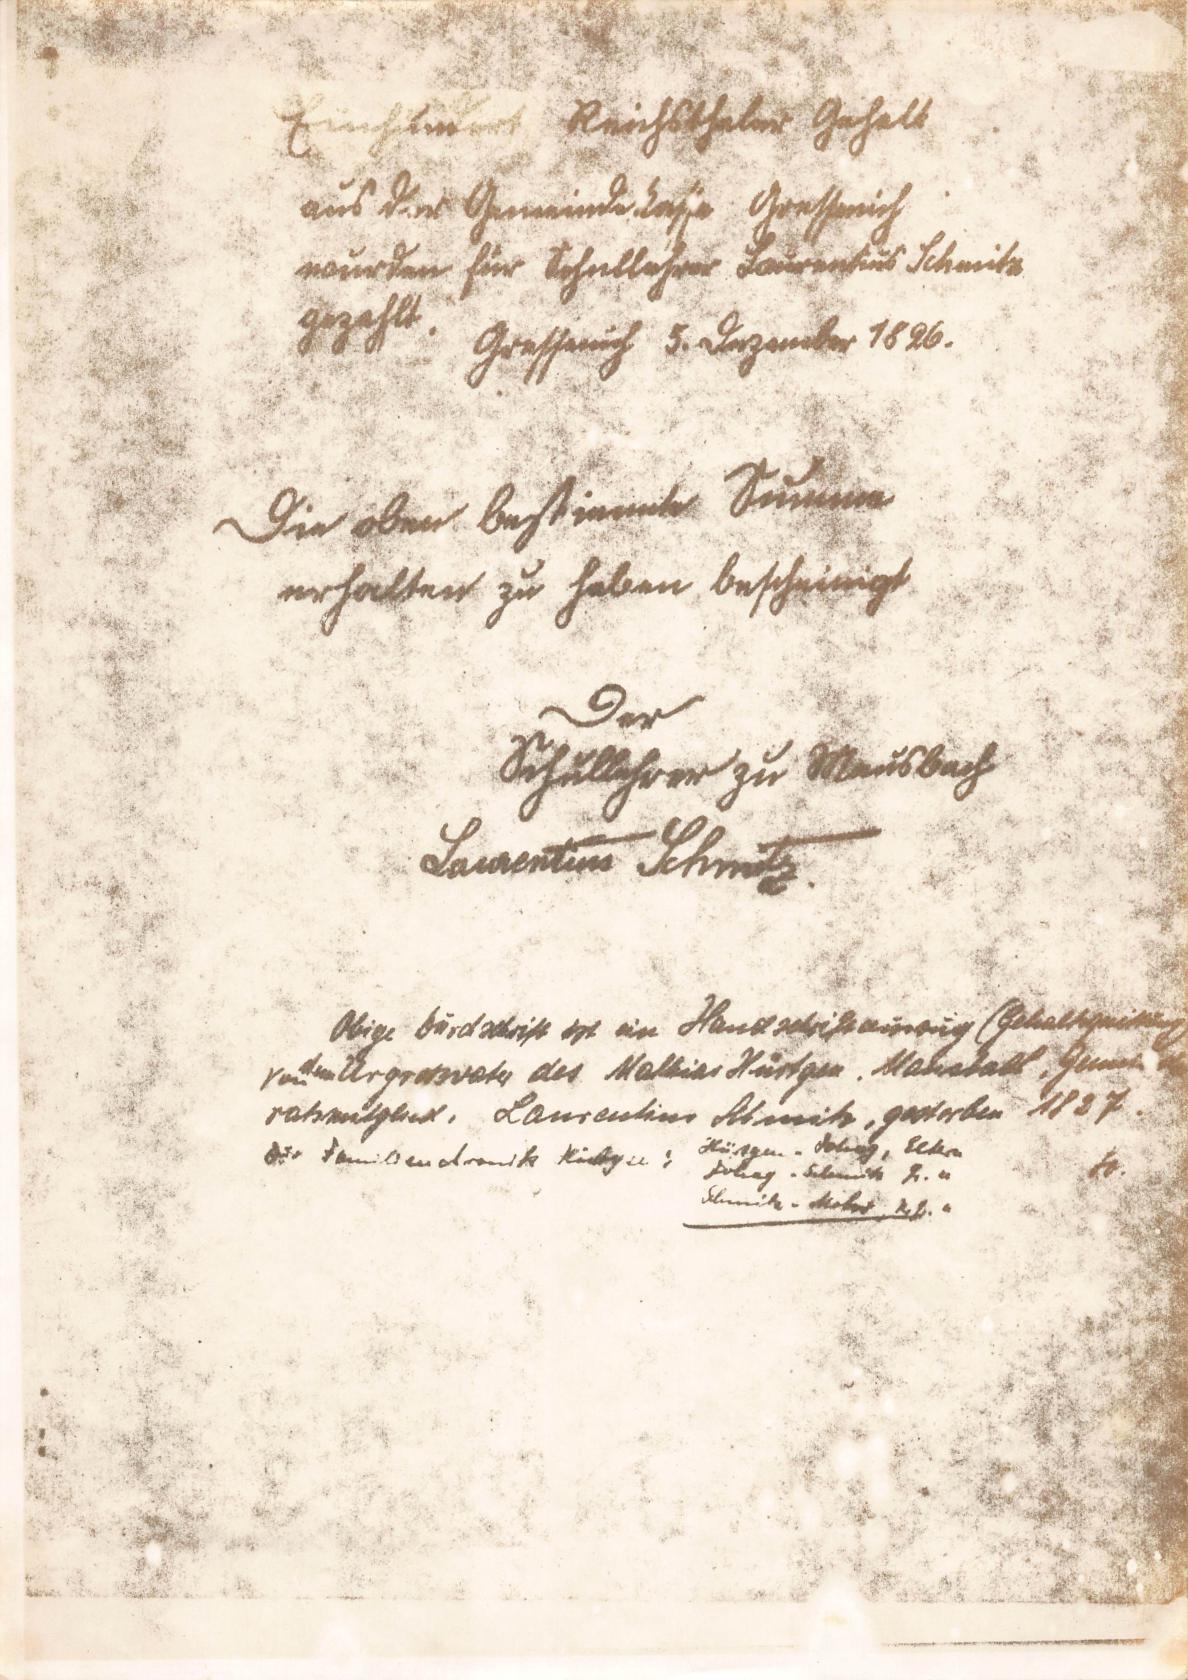 Einhundert Reichsthaler Gehalt
aus der Gemeindekasse Gressenich
wurden für Schullehrer Laurentius Schmitz
gezahlt.
Gressenich 5. Dezember 1826.
Die oben bestimmte Summe
erhalten zu haben bescheinigt
Der
Schullehrer zu Mausbach
Laurentius Schmitz.
Obige Durchschrift ist ein Handschriftauszug (Gehaltsquittung
von dem Urgrossvater des Mathias Hürtgen, Gemeinde
ratsmitglied. Laurentius Schmitz, gestorben 1827.
Die Familienchronik Hürtgen: Hürtgen - Eltern
- Schmitz
Schmitz -